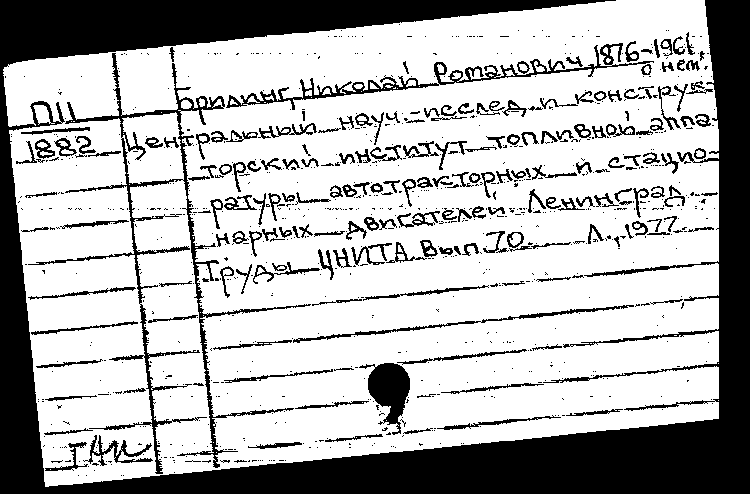 Брилинг, Николай Романович, 1876-1961,
о нем.
П11
1882
Центральный науч.-исслед. и конструк-
торский институт топливной аппа-
ратуры автотракторных и стацио-
нарных двигателей. Ленинград.
Труды ЦНИТА. Вып. 70. Л., 1977.